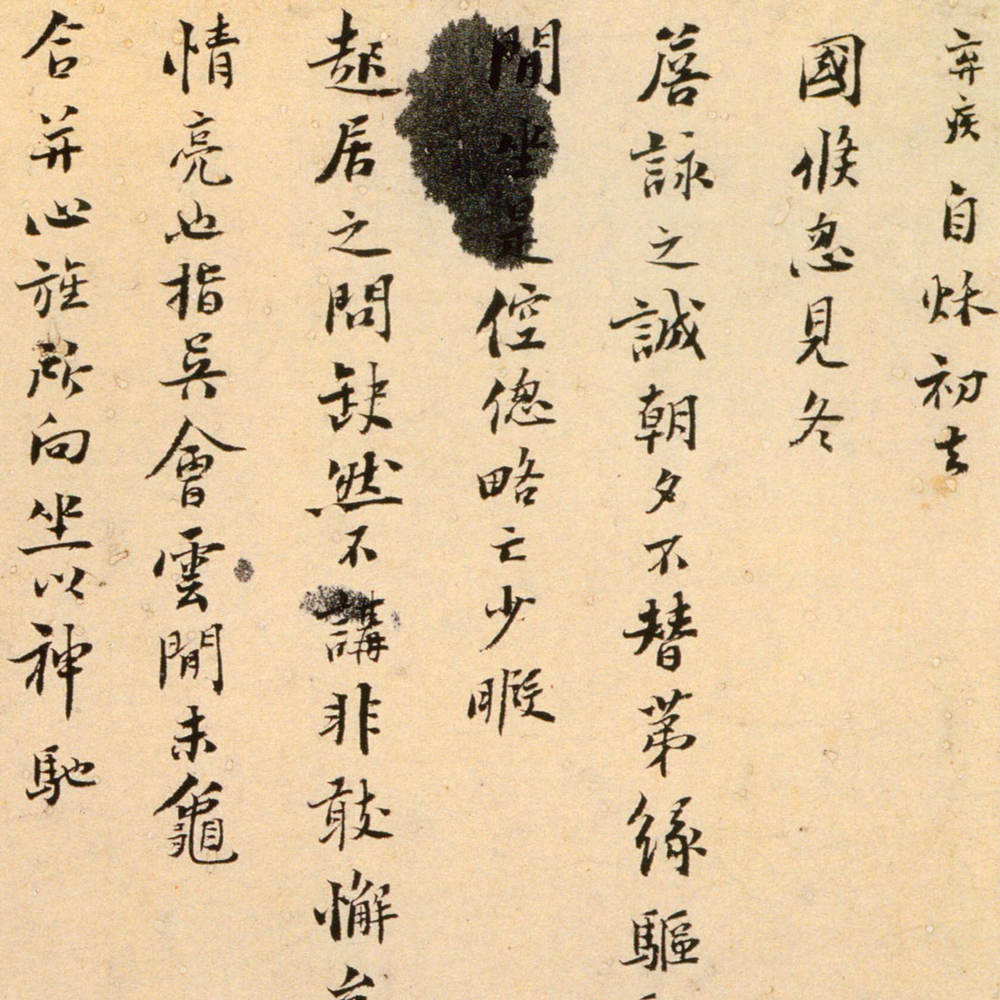 弃疾自秋初去
國倏忽見冬
詹詠之誠朝夕不替苐緣驅
間坐是倥傯略亡少暇
起居之問缺然不講非敢懈
情亮也指吳會雲間未龜
合并心旌所向坐以神馳